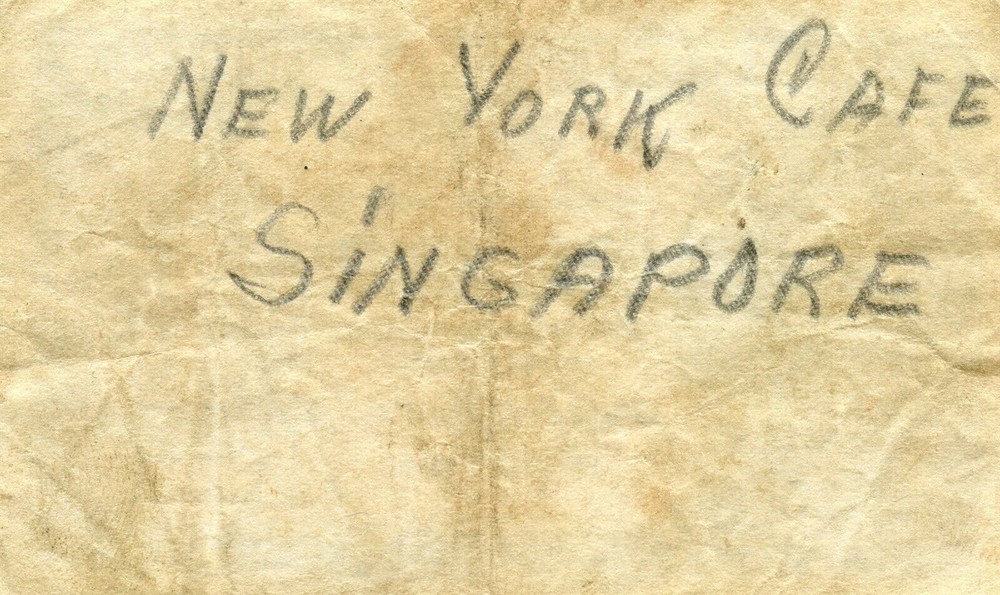 NEW YORK CAFE
SiNGAPORE